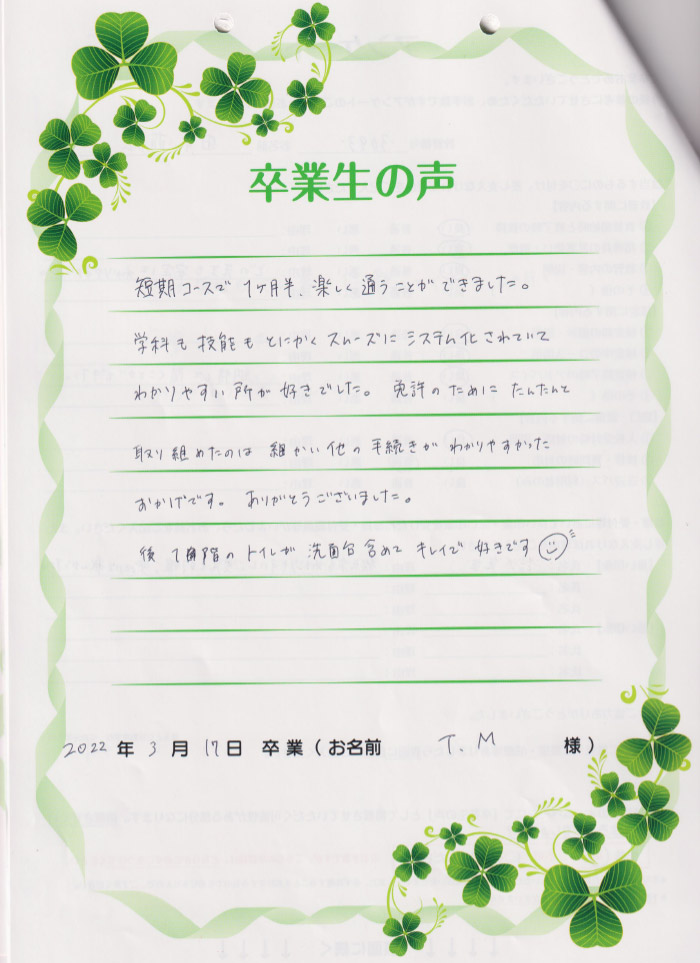 卒業生の声
短期コースで 1ヶ月半、楽しく通うことができました。
学科も技能もとにかくスムーズにシステム化されていて
わかりやすい所が好きでした。 免許のために たんたんと
取り組めたのは 細かい他の手続きが わかりやすかった
おかげです。 ありがとうございました。
後 1階のトイレが 洗面台含めて キレイで 好きです
2022年 3月 17日 卒業(お名前 T.M 様)